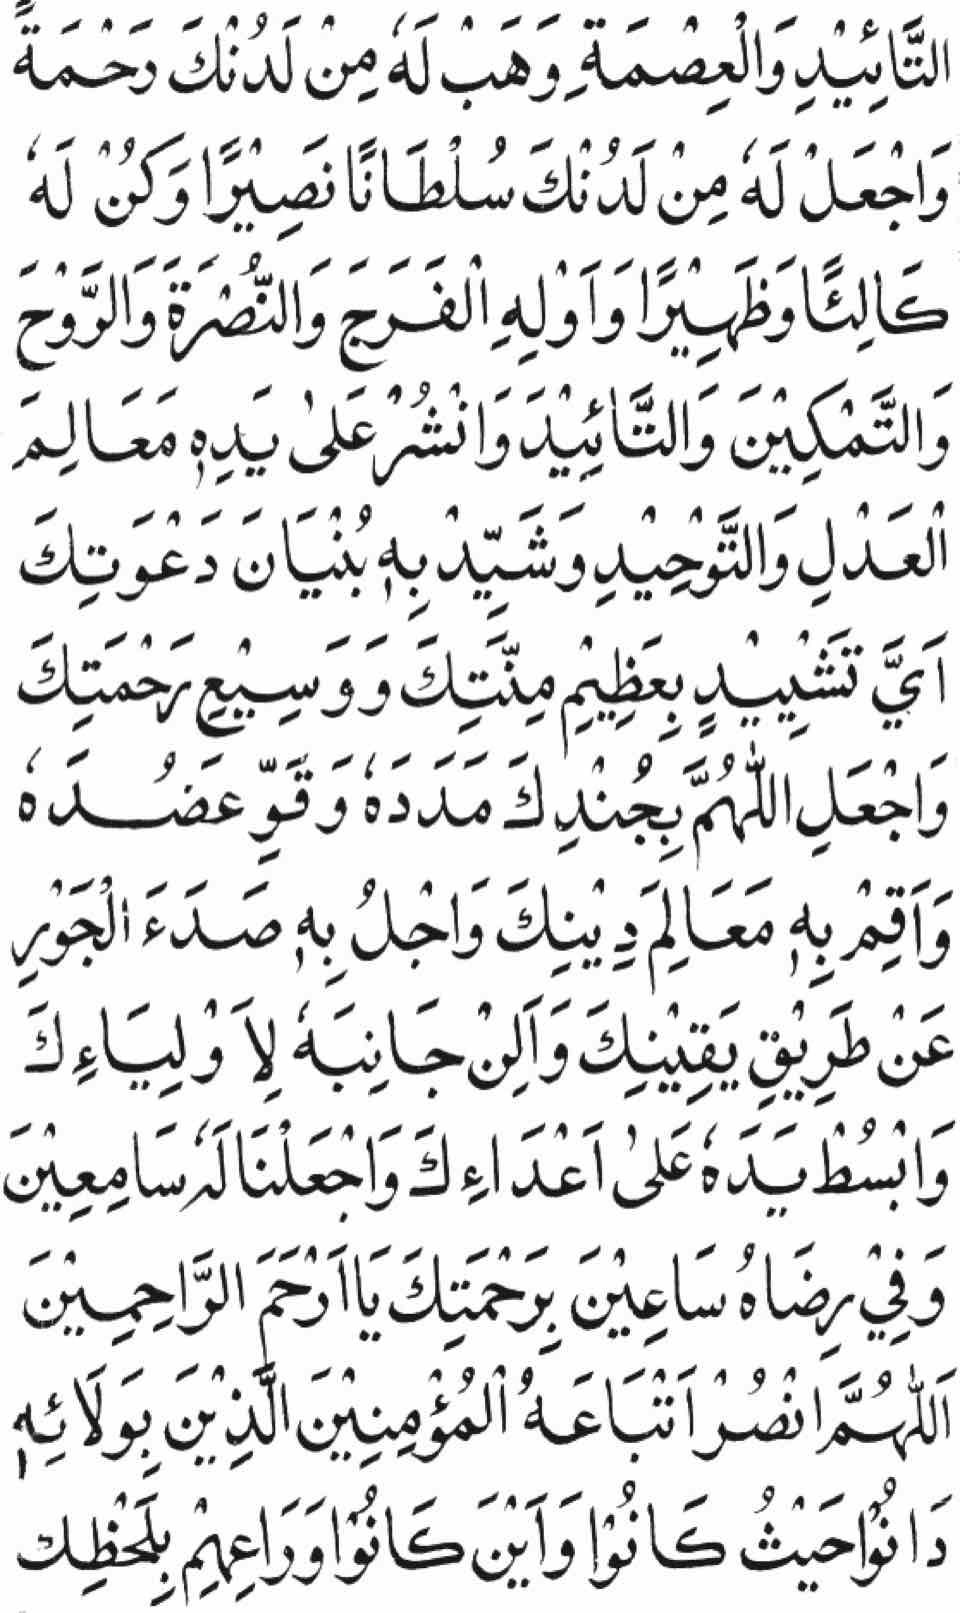 التَّائِيْدِ وَالْعِصْمَةِ وَهَبْ لَهٗ مِنْ لَدُنْكَ رَحْمَةً
وَاجْعَلْ لَهٗ مِنْ لَدُنْكَ سُلْطَانًا نَصِيْرًا وَكُنْ لَهٗ
كَالِئًا وَظَهِيْرًا وَاَوْلِهِ الْفَرَجَ وَالنُّصْرَةَ وَالرَّوْحَ
وَالتَّمْكِيْنَ وَالتَّائِيْدَ وَانْشُرْ عَلٰى يَدِهٖ مَعَالِمَ
الْعَدْلِ وَالتَّوْحِيْدِ وَشَيِّدْ بِهٖ بُنْيَانَ دَعْوَتِكَ
اَيَّ تَشْيِيْدٍ بِعَظِيْمِ مِنَّتِكَ وَوَسِيْعِ رَحْمَتِكَ
وَاجْعَلِ اللّٰهُمَّ بِجُنْدِكَ مَدَدَهٗ وَقَوِّ عَضُدَهٗ
وَاَقِمْ بِهٖ مَعَالِمَ دِيْنِكَ وَاجْلُ بِهٖ صَدَءَ الْجَوْرِ
عَنْ طَرِيْقِ يَقِيْنِكَ وَاَلِنْ جَانِبَهٗ لِاَوْلِيَاءِكَ
وَابْسُطْ يَدَهٗ عَلٰى اَعْدَاءِكَ وَاجْعَلْنَا لَهٗ سَامِعِيْنَ
وَفِيْ رِضَاهُ سَاعِيْنَ بِرَحْمَتِكَ يَا اَرْحَمَ الرَّاحِمِيْنَ
اَللّٰهُمَّ انْصُرْ اَتْبَاعَهُ الْمُؤْمِنِيْنَ الَّذِيْنَ بِوَلَائِهٖ
دَانُوْا حَيْثُ كَانُوْا وَاَيْنَ كَانُوْا وَرَاعِهِمْ بِلَحْظِك